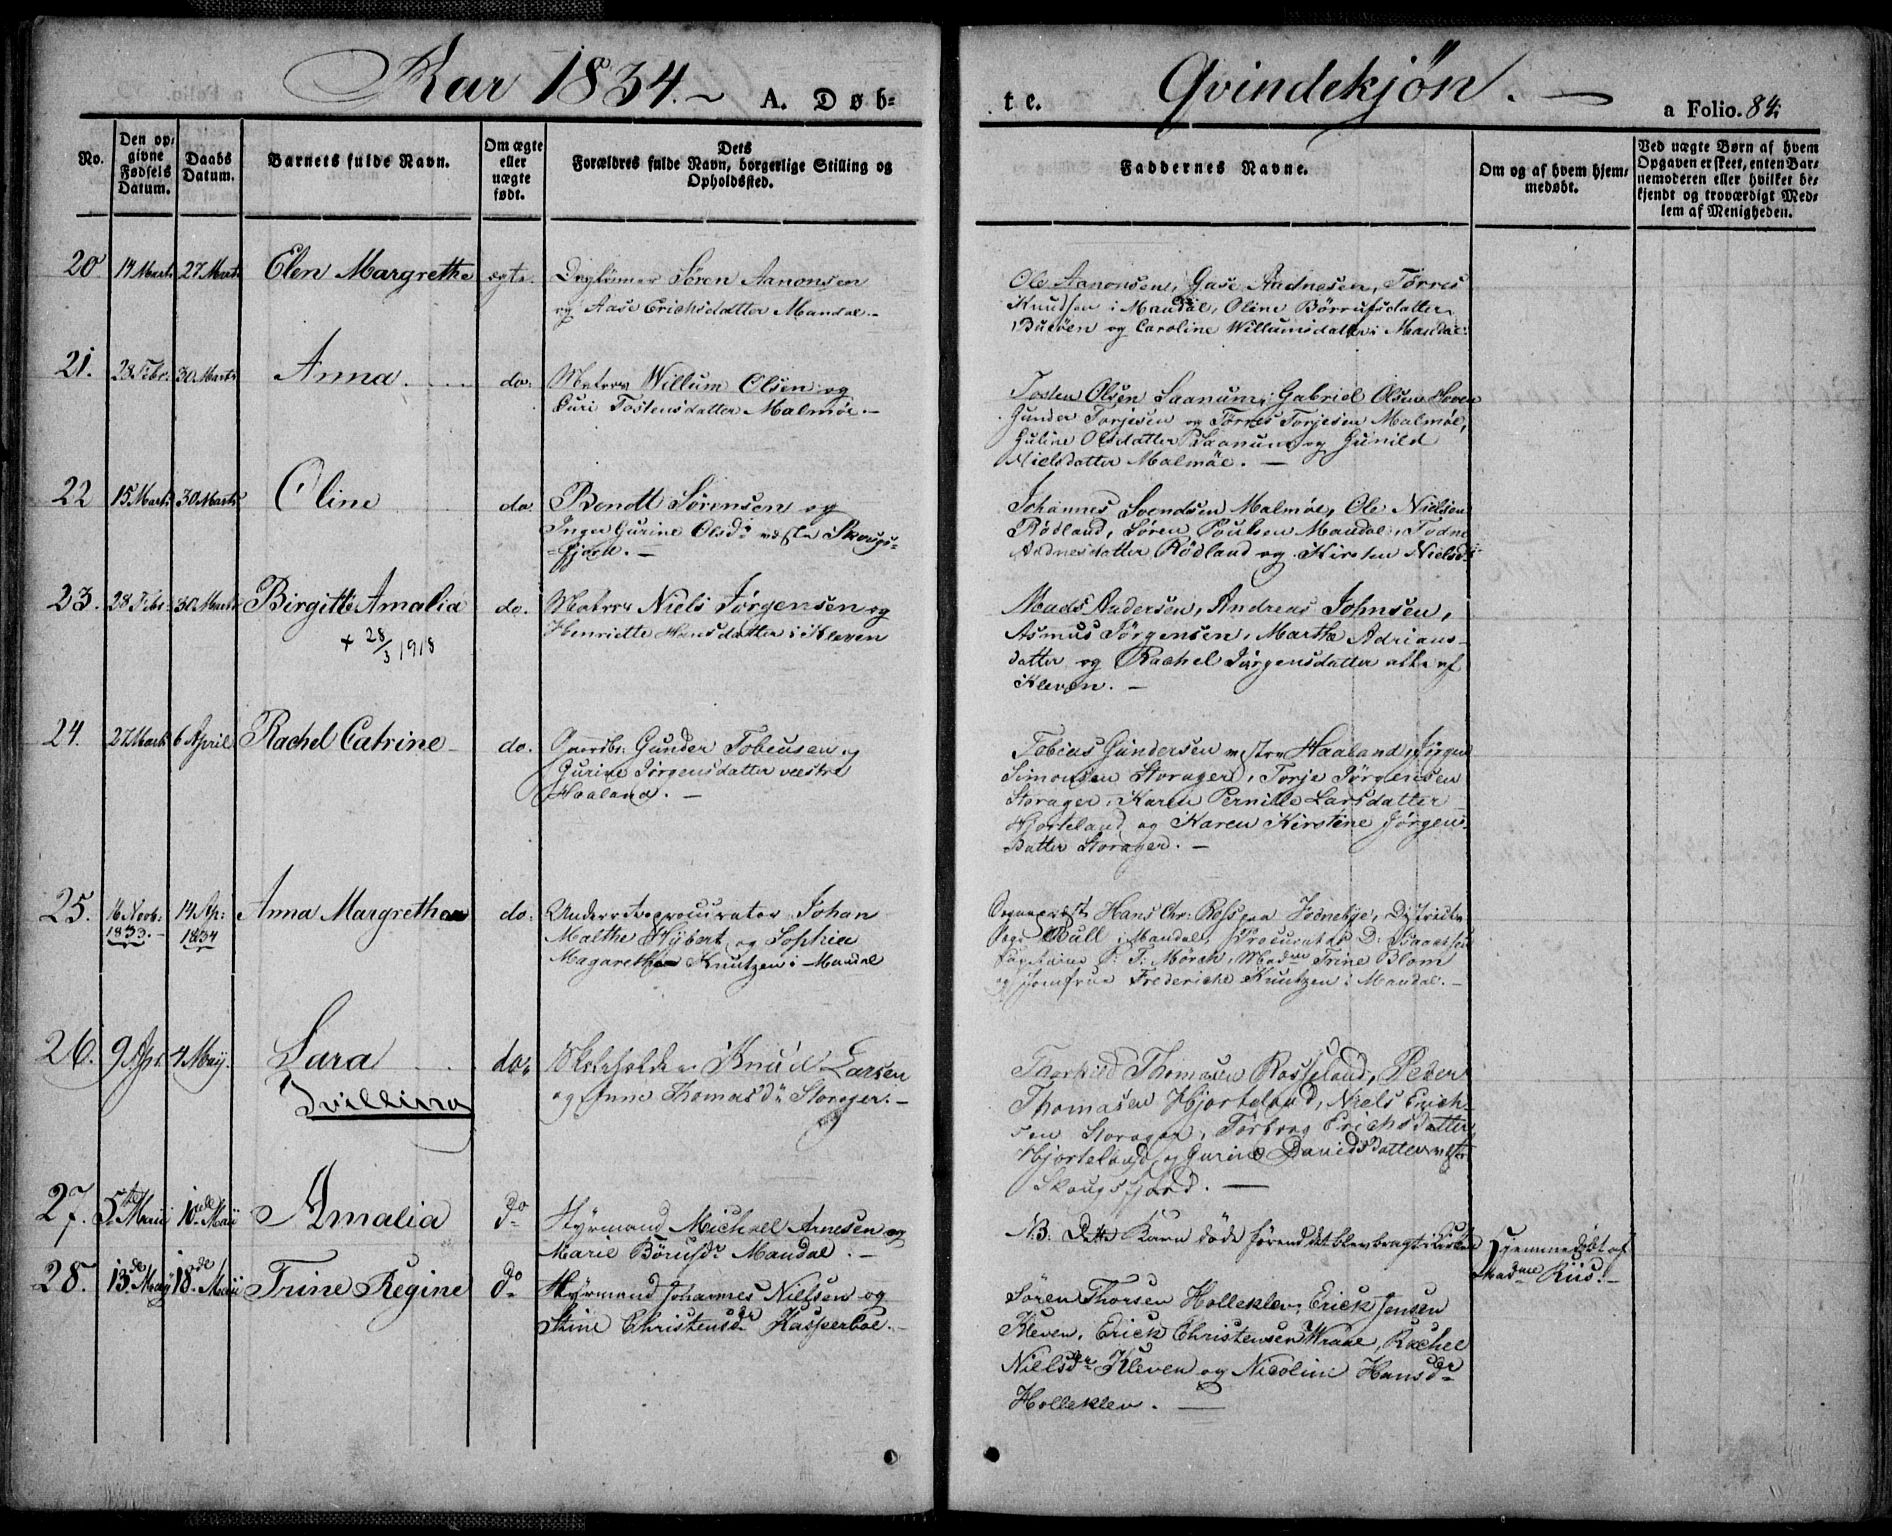 Aar 1834. A. Døb=
te. Qvindekjøn. a Folio. 84.
No.
Den op=
givne
Fødsels
Datum.
Daabs
Datum.
Barnets fulde Navn.
Om ægte
eller
uægte
født.
Dets
Forældres fulde Navn, borgerlige Stilling og
Opholdssted.
Faddernes Navne.
Om og af hvem hjem=
medøbt.
Ved uægte Børn af hvem
Opgaven er skeet, enten Bar=
nemoderen eller hvilket be=
kjendt og troværdigt Med=
lem af Menigheden.
20 14 Marts 27 Marts Elen Margrethe ægte.
Søren Aanonsen
og Aase Erichsdatter Mandal.
Ole Aanonsen, Aadnesen, Tørres
Knudsen i Mandal, Oline
og Caroline Willumsdatter i Mandal.
21. 28 Febr: 30 Marts Anna do:
Matros Willum Olsen og
Guri Tostensdatter Malmøe.
Tosten Olsen Saanum, Gabriel Olsen
Gunder Torjesen og Tørres Torjesen Malmøe,
Guline Olsdatter Saanum og Gunild
Nielsdatter Malmøe.
22 15 Marts 30 Marts Oline do
Bendt Sørensen og
Inger Gurine Olsd: Skougs=
=fjord.
Johannes Svendsen Malmøe, Ole Nielsen
Rødland, Søren Poulsen Mandal, Todne
Aadnesdatter Rødland og Kirsten Nielsd:
23. 28 Febr: 30 Marts Birgitte Amalia do.
+ 28/3 1918
Matros Niels Jørgensen og
Henriette Hansdatter i Kleven
Mads Andersen, Andreas Johnsen,
Asmus Jørgensen, Marthe Adrians=
datter og Rachel Jørgensdatter alle af
Kleven.
24. 27 Marts 6 April Rachel Catrine do.
Gaardbr: Gunder Tobiesen og
Gurine Jørgensdatter vestre
Haaland.
Tobias Gundersen vestre Haaland, Jørgen
Simonsen Storager, Torje Jørgensen
Storager, Karen Pernille Larsdatter
Hjorteland og Karen Kirstine Jørgens=
datter Storager.
25. 16 Novb: 14 Ap: Anna Margretha do:
1833. 1834
Underretsprocurator Johan
Malthe Hybert og Sophia
Magaretha Knutzen i Mandal
Hans Chr: Ross paa
Bull i Mandal, Procurator D: Isaachsen
F: Mørch, Madme Trine Blom
og Jomfrue Frederiche Knutzen i Mandal.
26. 9 Apr. 4 May. Lara do:
Tvilling
Skoleholder Knud Larsen
og Anne Thomasd: Storager.
Thorkild Thomasen Rosseland, Peder
Thomasen Hjorteland, Niels Erich=
sen Storager, Torborg Erichsdatter
Hjorteland og Gurine Davidsdatter
Skougsfjord.
27. 5te Maii 10de Maii Amalia do
Styrmand Michael Arnesen og
Marie Børusdr Mandal.
NB. Dette Barn døde førend det blev bragt i Kirken
Hjemmedøbt af
Madme Riis.
28. 13de May 18de Maii Trine Regine do
Styrmand Johannes Nielsen og
Stine Christensdr Kasperboe.
Søren Thorsen Holleklev, Erick Jensen
Kleven, Erick Christensen Wraae, Rachel
Nielsdr Kleven og Nicoline Hansdr
Holleklev.